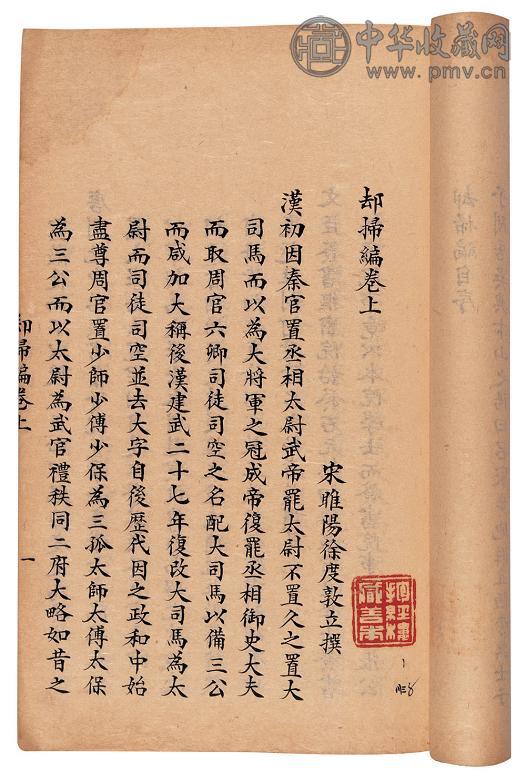 中华收藏网
www.pmv.cn
却掃編卷上
宋睢陽徐度敦立撰
漢初因秦官置丞相太尉武帝罷太尉不置久之置大
司馬而以為大將軍之冠成帝復罷丞相御史大夫
而取周官六卿司徒司空之名配大司馬以備三公
而咸加大稱後漢建武二十七年復改大司馬為太
尉而司徒司空並去大字自後歷代因之政和中始
盡尊周官置少師少傅少保為三孤太師太傅太保
為三公而以太尉為武官禮秩同二府大略如昔之
却掃編卷上
一
却掃編自序